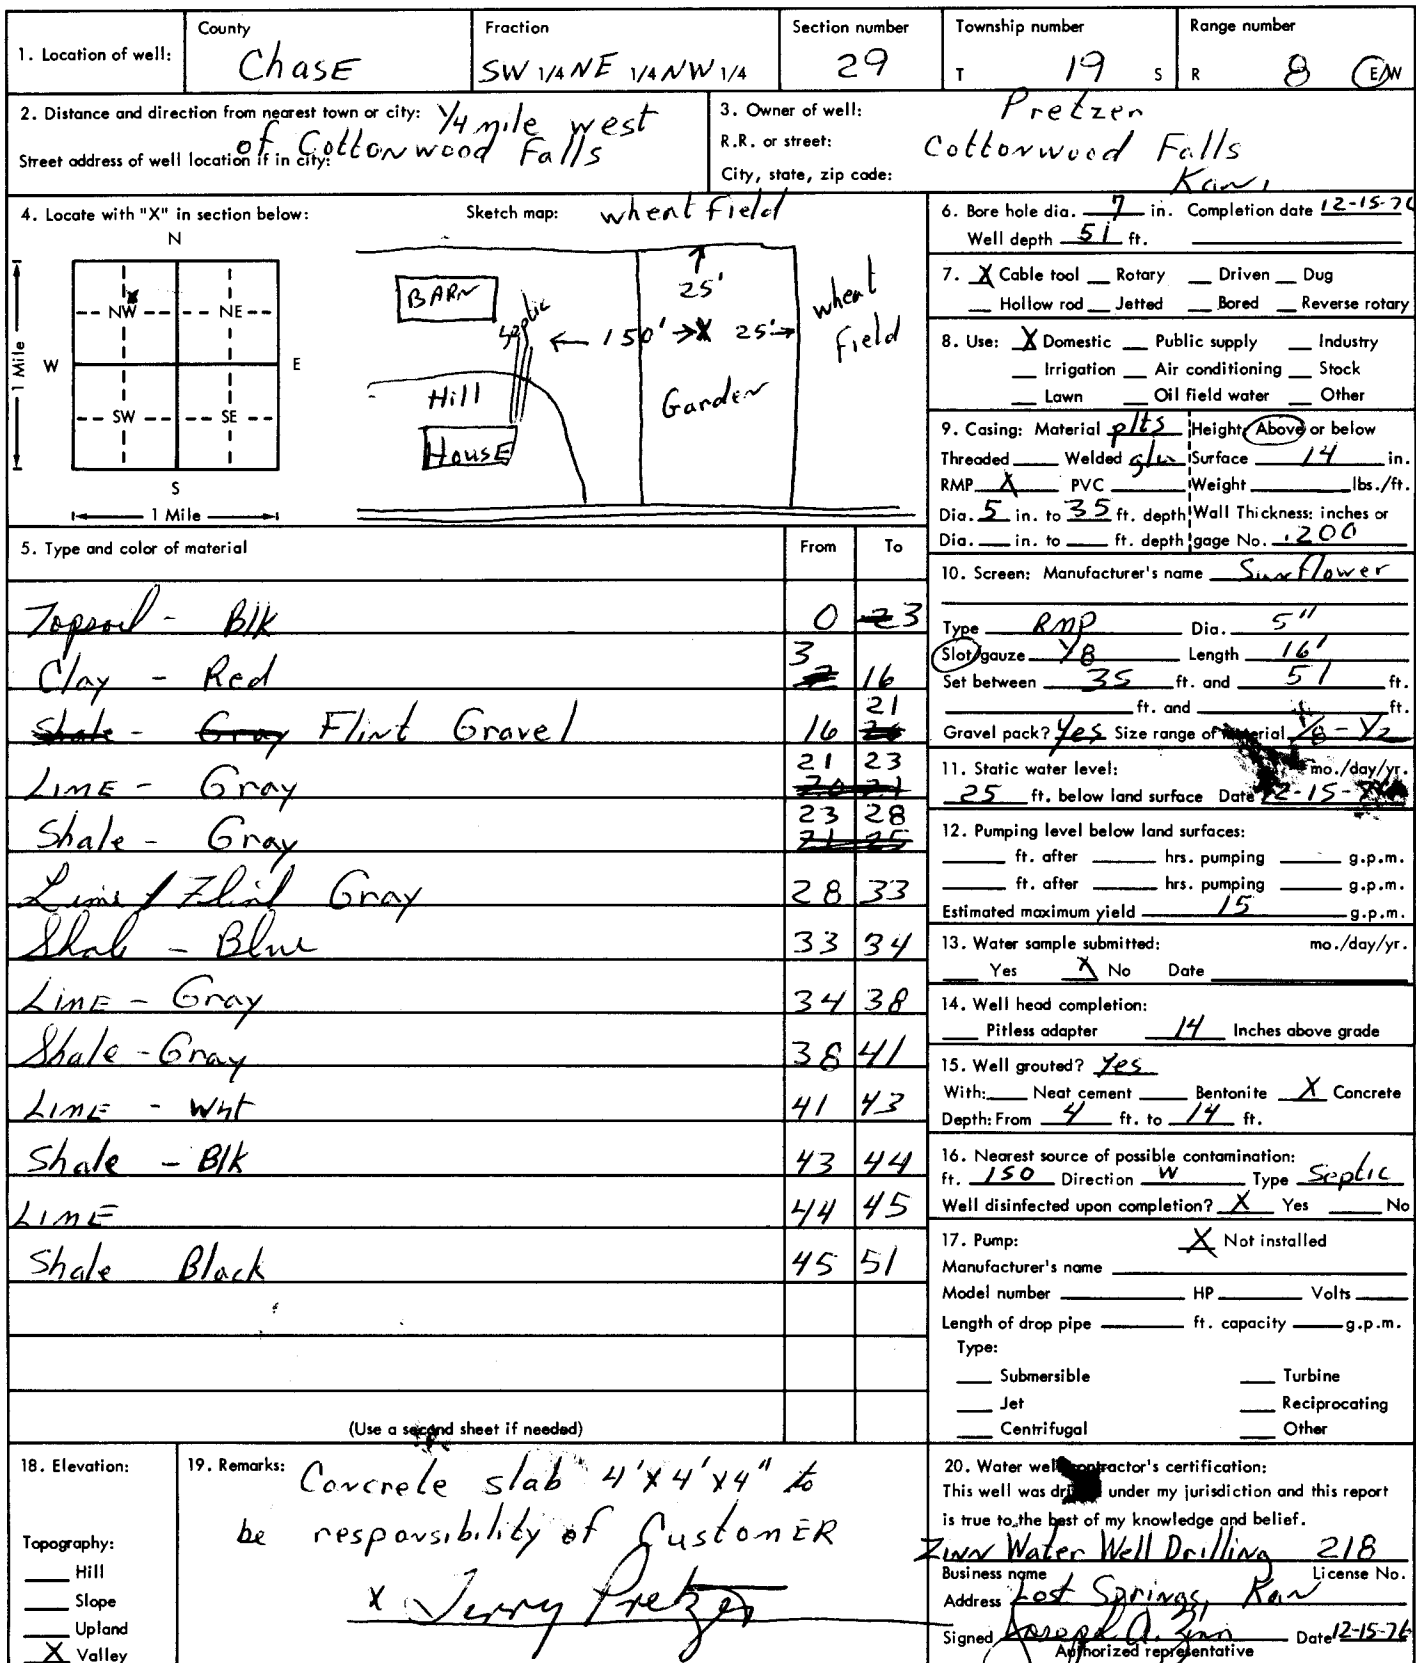 1. Location of well: County Chase Fraction SW 1/4 NE 1/4 NW 1/4 Section number 29 Township number T 19 S Range number R 8 E/W
2. Distance and direction from nearest town or city: 1/4 mile west
of Cottonwood Falls
Street address of well location if in city:
3. Owner of well: Pretzer
R.R. or street: Cottonwood Falls
City, state, zip code: Kan,
4. Locate with "X" in section below:
N
NW X NE
W E
SW SE
S
1 Mile
1 Mile
Sketch map: wheat field
BARN
septic
25'
← 150' → X 25' →
wheat
field
Hill
Garden
House
5. Type and color of material From To
Topsoil - Blk 0 3
Clay - Red 3 16
Shale - Gray Flint Gravel 16 21
LIME - Gray 21 23
20 21
Shale - Gray 23 28
21 25
Lime / Flint Gray 28 33
Shale - Blue 33 34
LIME - Gray 34 38
Shale - Gray 38 41
LIME - Wht 41 43
Shale - Blk 43 44
LIME 44 45
Shale Black 45 51
(Use a second sheet if needed)
6. Bore hole dia. 7 in. Completion date 12-15-76
Well depth 51 ft.
7. X Cable tool Rotary Driven Dug
Hollow rod Jetted Bored Reverse rotary
8. Use: X Domestic Public supply Industry
Irrigation Air conditioning Stock
Lawn Oil field water Other
9. Casing: Material plts Height: Above or below
Threaded Welded glu Surface 14 in.
RMP X PVC Weight lbs./ft.
Dia. 5 in. to 35 ft. depth Wall Thickness: inches or
Dia. in. to ft. depth gage No. .200
10. Screen: Manufacturer's name Sunflower
Type RMP Dia. 5"
Slot/gauze 1/8 Length 16'
Set between 35 ft. and 51 ft.
ft. and ft.
Gravel pack? Yes Size range of material 1/8 - 1/2
11. Static water level: mo./day/yr.
25 ft. below land surface Date 12-15-76
12. Pumping level below land surfaces:
ft. after hrs. pumping g.p.m.
ft. after hrs. pumping g.p.m.
Estimated maximum yield 15 g.p.m.
13. Water sample submitted: mo./day/yr.
Yes X No Date
14. Well head completion:
Pitless adapter 14 Inches above grade
15. Well grouted? Yes
With: Neat cement Bentonite X Concrete
Depth: From 4 ft. to 14 ft.
16. Nearest source of possible contamination:
ft. 150 Direction W Type Septic
Well disinfected upon completion? X Yes No
17. Pump: X Not installed
Manufacturer's name
Model number HP Volts
Length of drop pipe ft. capacity g.p.m.
Type:
Submersible Turbine
Jet Reciprocating
Centrifugal Other
18. Elevation:
Topography:
Hill
Slope
Upland
X Valley
19. Remarks: Concrete slab 4'x4'x4" to
be responsibility of Customer
x Jerry Pretzer
20. Water well contractor's certification:
This well was drilled under my jurisdiction and this report
is true to the best of my knowledge and belief.
Zinn Water Well Drilling 218
Business name License No.
Address Lost Springs, Kan
Signed Joseph A. Zinn Date 12-15-76
Authorized representative